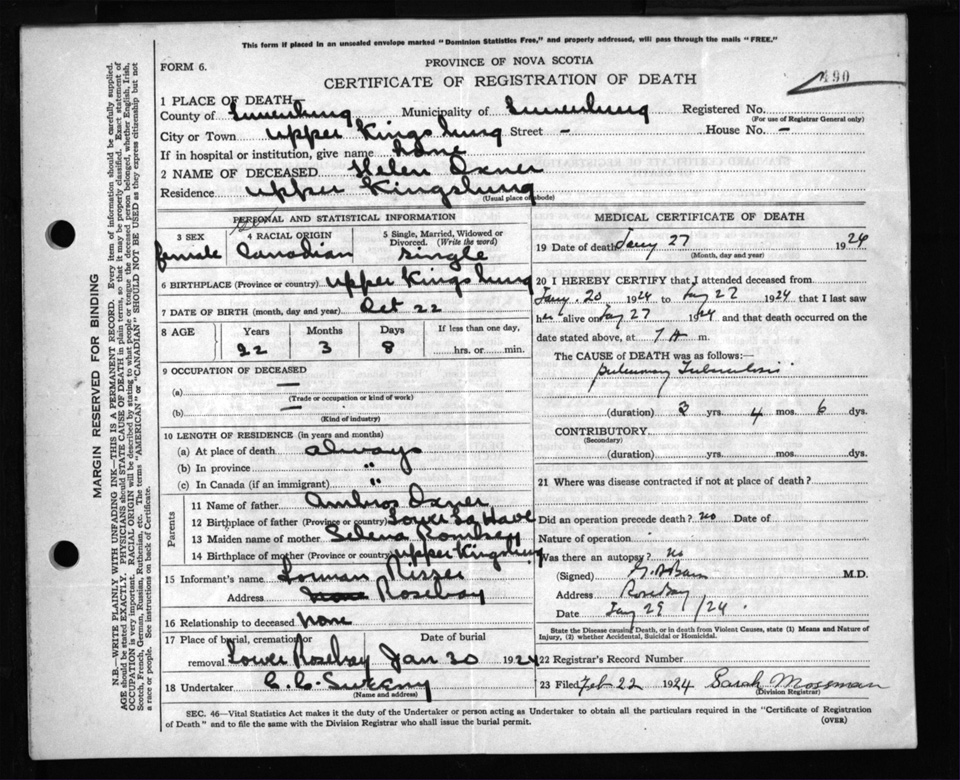 This form if placed in an unsealed envelope marked "Dominion Statistics Free," and properly addressed, will pass through the mails "FREE."
FORM 6.
PROVINCE OF NOVA SCOTIA
CERTIFICATE OF REGISTRATION OF DEATH
490
1 PLACE OF DEATH
County of Lunenburg Municipality of Lunenburg Registered No.
(For use of Registrar General only)
City or Town Upper Kingsburg Street - House No. -
If in hospital or institution, give name home
2 NAME OF DECEASED Helen Oxner
Residence Upper Kingsburg
(Usual place of abode)
PERSONAL AND STATISTICAL INFORMATION
3 SEX female
4 RACIAL ORIGIN Canadian
5 Single, Married, Widowed or Divorced. (Write the word) single
6 BIRTHPLACE (Province or country) Upper Kingsburg
7 DATE OF BIRTH (month, day and year) Oct 22
8 AGE Years Months Days If less than one day,
22 3 8 hrs. or min.
9 OCCUPATION OF DECEASED
(a) —
(Trade or occupation or kind of work)
(b) —
(Kind of industry)
10 LENGTH OF RESIDENCE (in years and months)
(a) At place of death always
(b) In province "
(c) In Canada (if an immigrant) "
Parents
11 Name of father Ambros Oxner
12 Birthplace of father (Province or country) Lower La Have
13 Maiden name of mother Selena
14 Birthplace of mother (Province or country) Upper Kingsburg
15 Informant's name Risser
Address Rosebay
16 Relationship to deceased none
17 Place of burial, cremation or removal Lower Rosebay
Date of burial Jan 30 1924
18 Undertaker C. C. Sweeny
(Name and address)
MEDICAL CERTIFICATE OF DEATH
19 Date of death Jany 27 1924
(Month, day and year)
20 I HEREBY CERTIFY that I attended deceased from
Jany. 20 1924 to Jany 27 1924 that I last saw
her alive on Jany 27 1924 and that death occurred on the
date stated above, at 7 A m.
The CAUSE OF DEATH was as follows:—
Pulmonary Tuberculosis
(duration) 3 yrs. 4 mos. 6 dys.
CONTRIBUTORY
(Secondary)
(duration) yrs. mos. dys.
21 Where was disease contracted if not at place of death?
Did an operation precede death? no Date of
Nature of operation
Was there an autopsy? no
(Signed) M.D.
Address Rosebay
Date Jany 29 /24
State the Disease causing Death, or in death from Violent Causes, state (1) Means and Nature of
Injury, (2) whether Accidental, Suicidal or Homicidal.
22 Registrar's Record Number
23 Filed Feb 22 1924 Sarah Mossman
(Division Registrar)
SEC. 46—Vital Statistics Act makes it the duty of the Undertaker or person acting as Undertaker to obtain all the particulars required in the "Certificate of Registration
of Death" and to file the same with the Division Registrar who shall issue the burial permit.
(OVER)
MARGIN RESERVED FOR BINDING
N.B.—WRITE PLAINLY WITH UNFADING INK—THIS IS A PERMANENT RECORD. Every item of information should be carefully supplied.
AGE should be stated EXACTLY. PHYSICIANS should STATE CAUSE OF DEATH in plain terms, so that it may be properly classified. Exact statement of
OCCUPATION is very important. RACIAL ORIGIN will be described by stating to what people or tongue the deceased person belonged, whether English, Irish,
Scotch, French, German, Russian, Ruthenian, etc. The terms "AMERICAN" or "CANADIAN" SHOULD NOT BE USED as they express citizenship but not
a race or people. See instructions on back of Certificate.